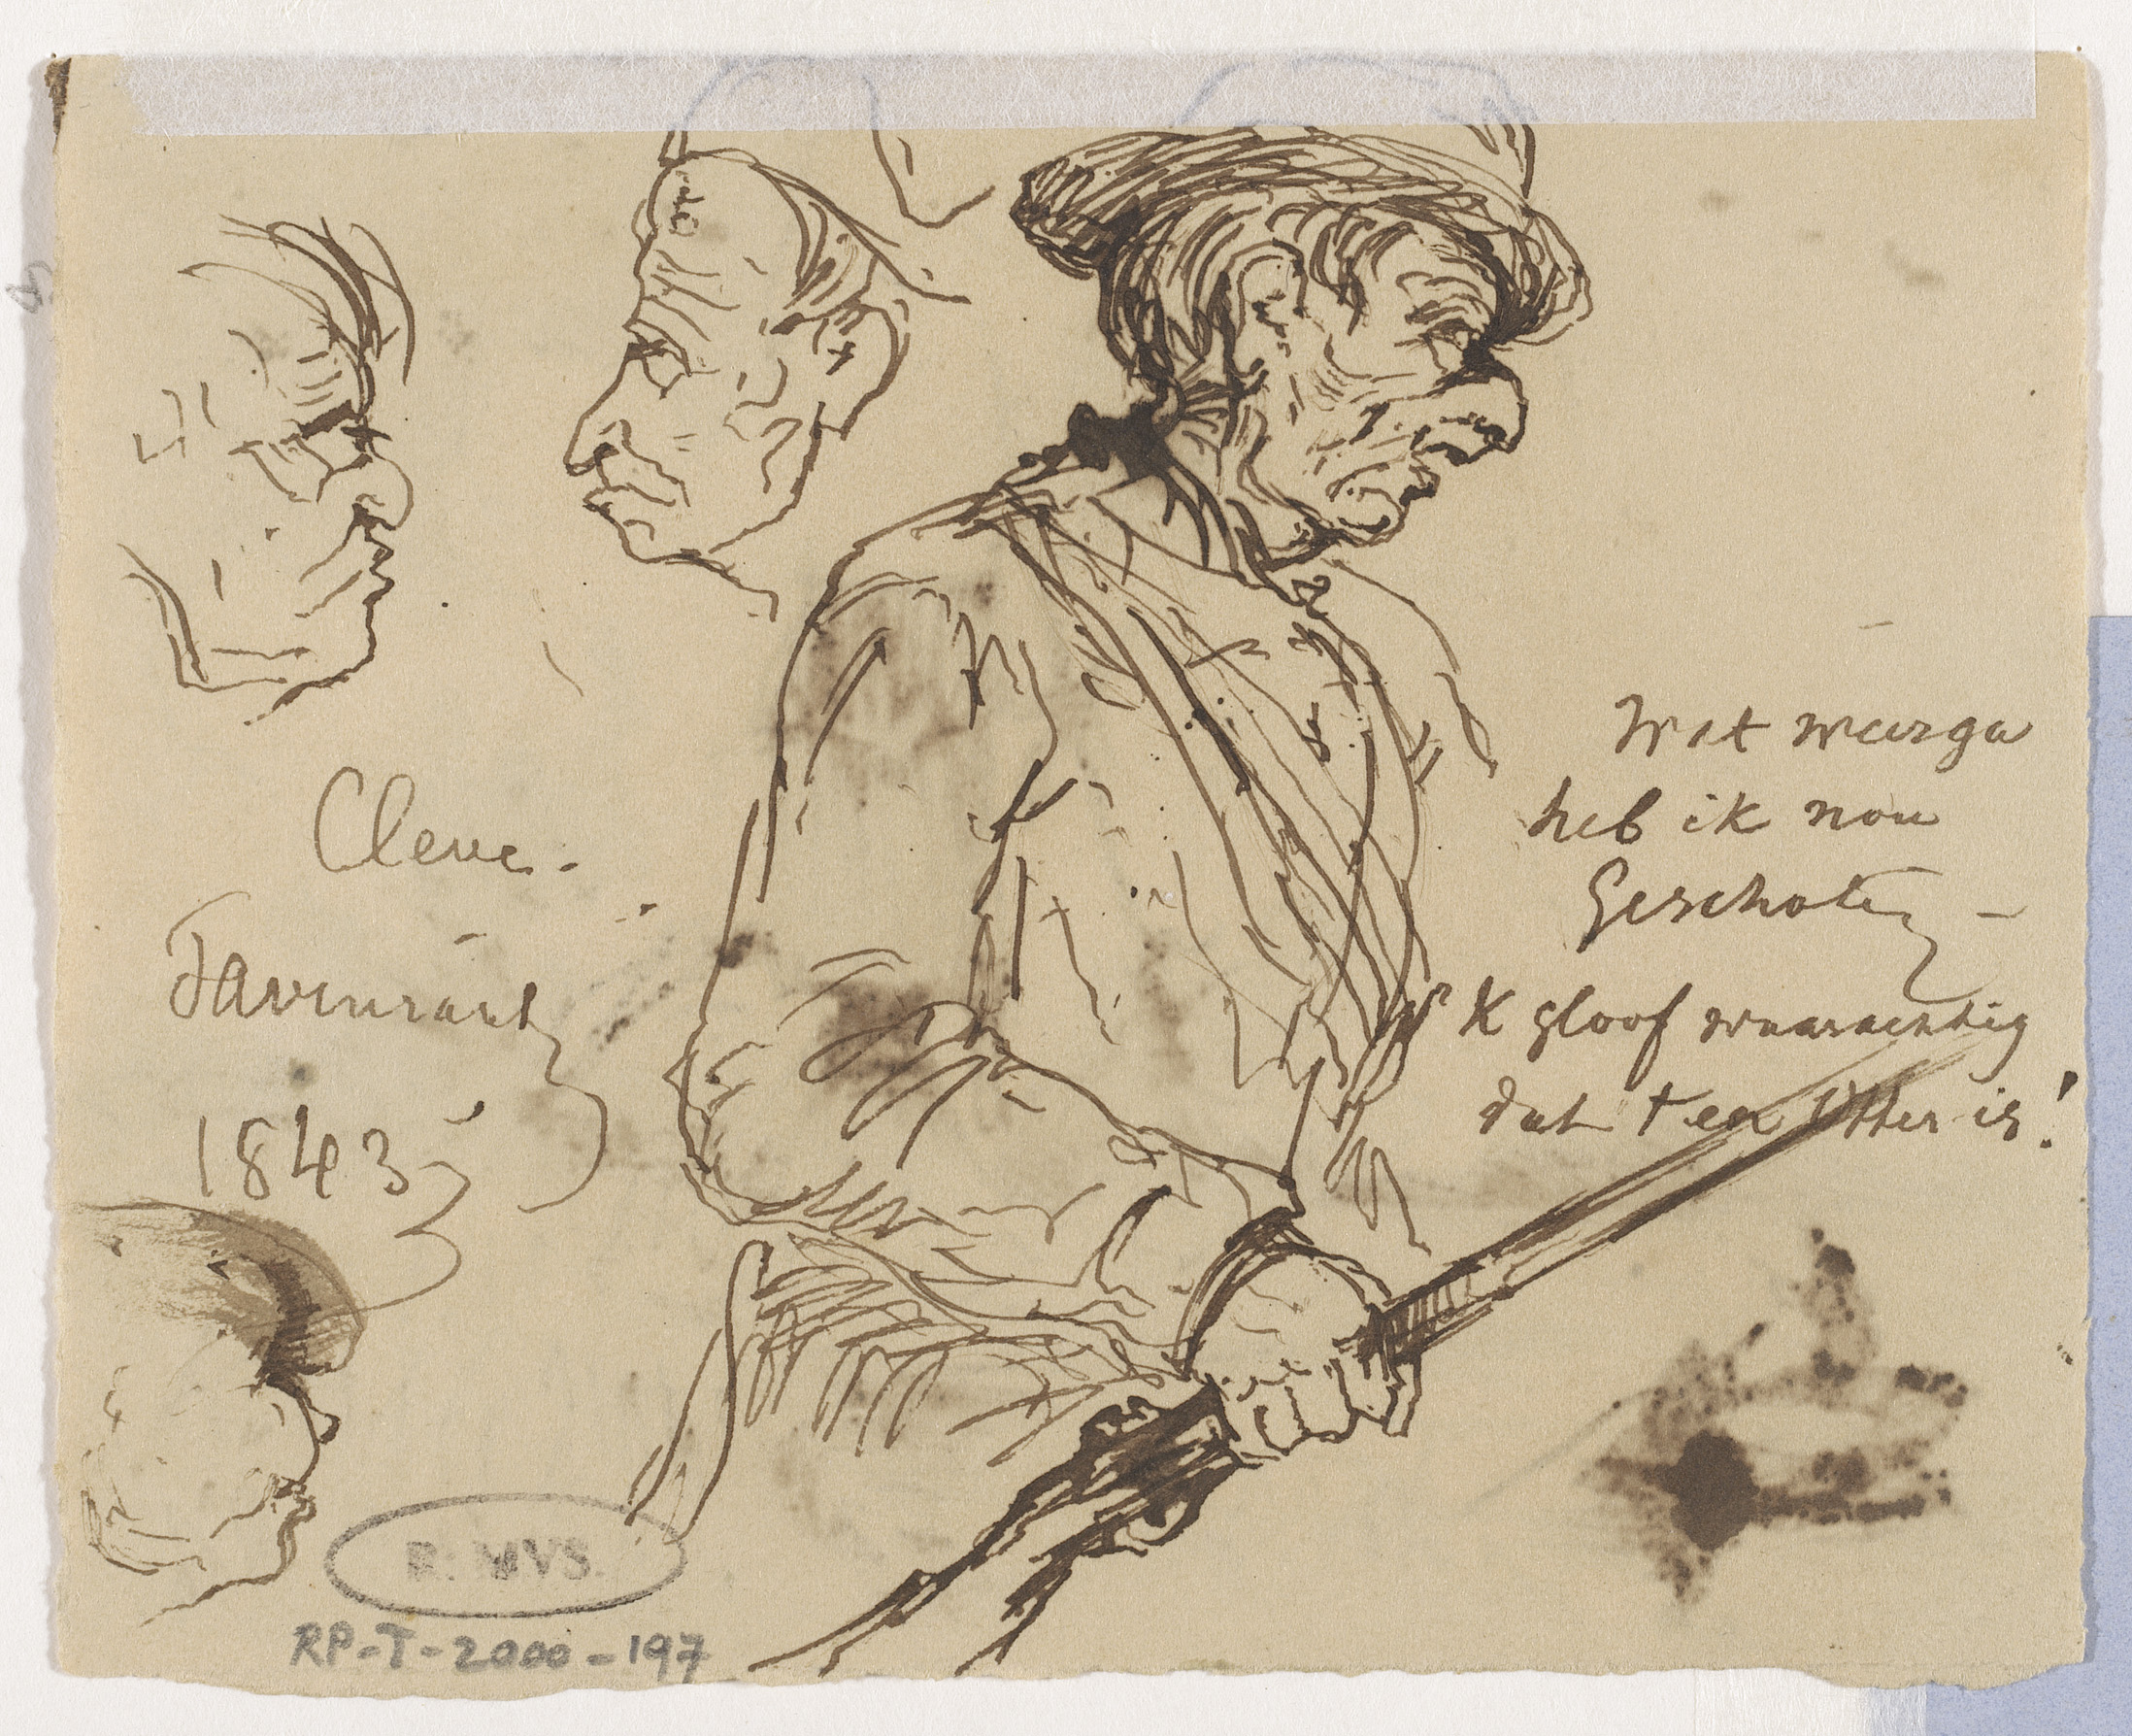 Cleve.
1843
Wat
heb ik nou
Geschoten —
'K gloof waarachtig
dat 't een Otter is!
R: MVS.
RP-T-2000-197